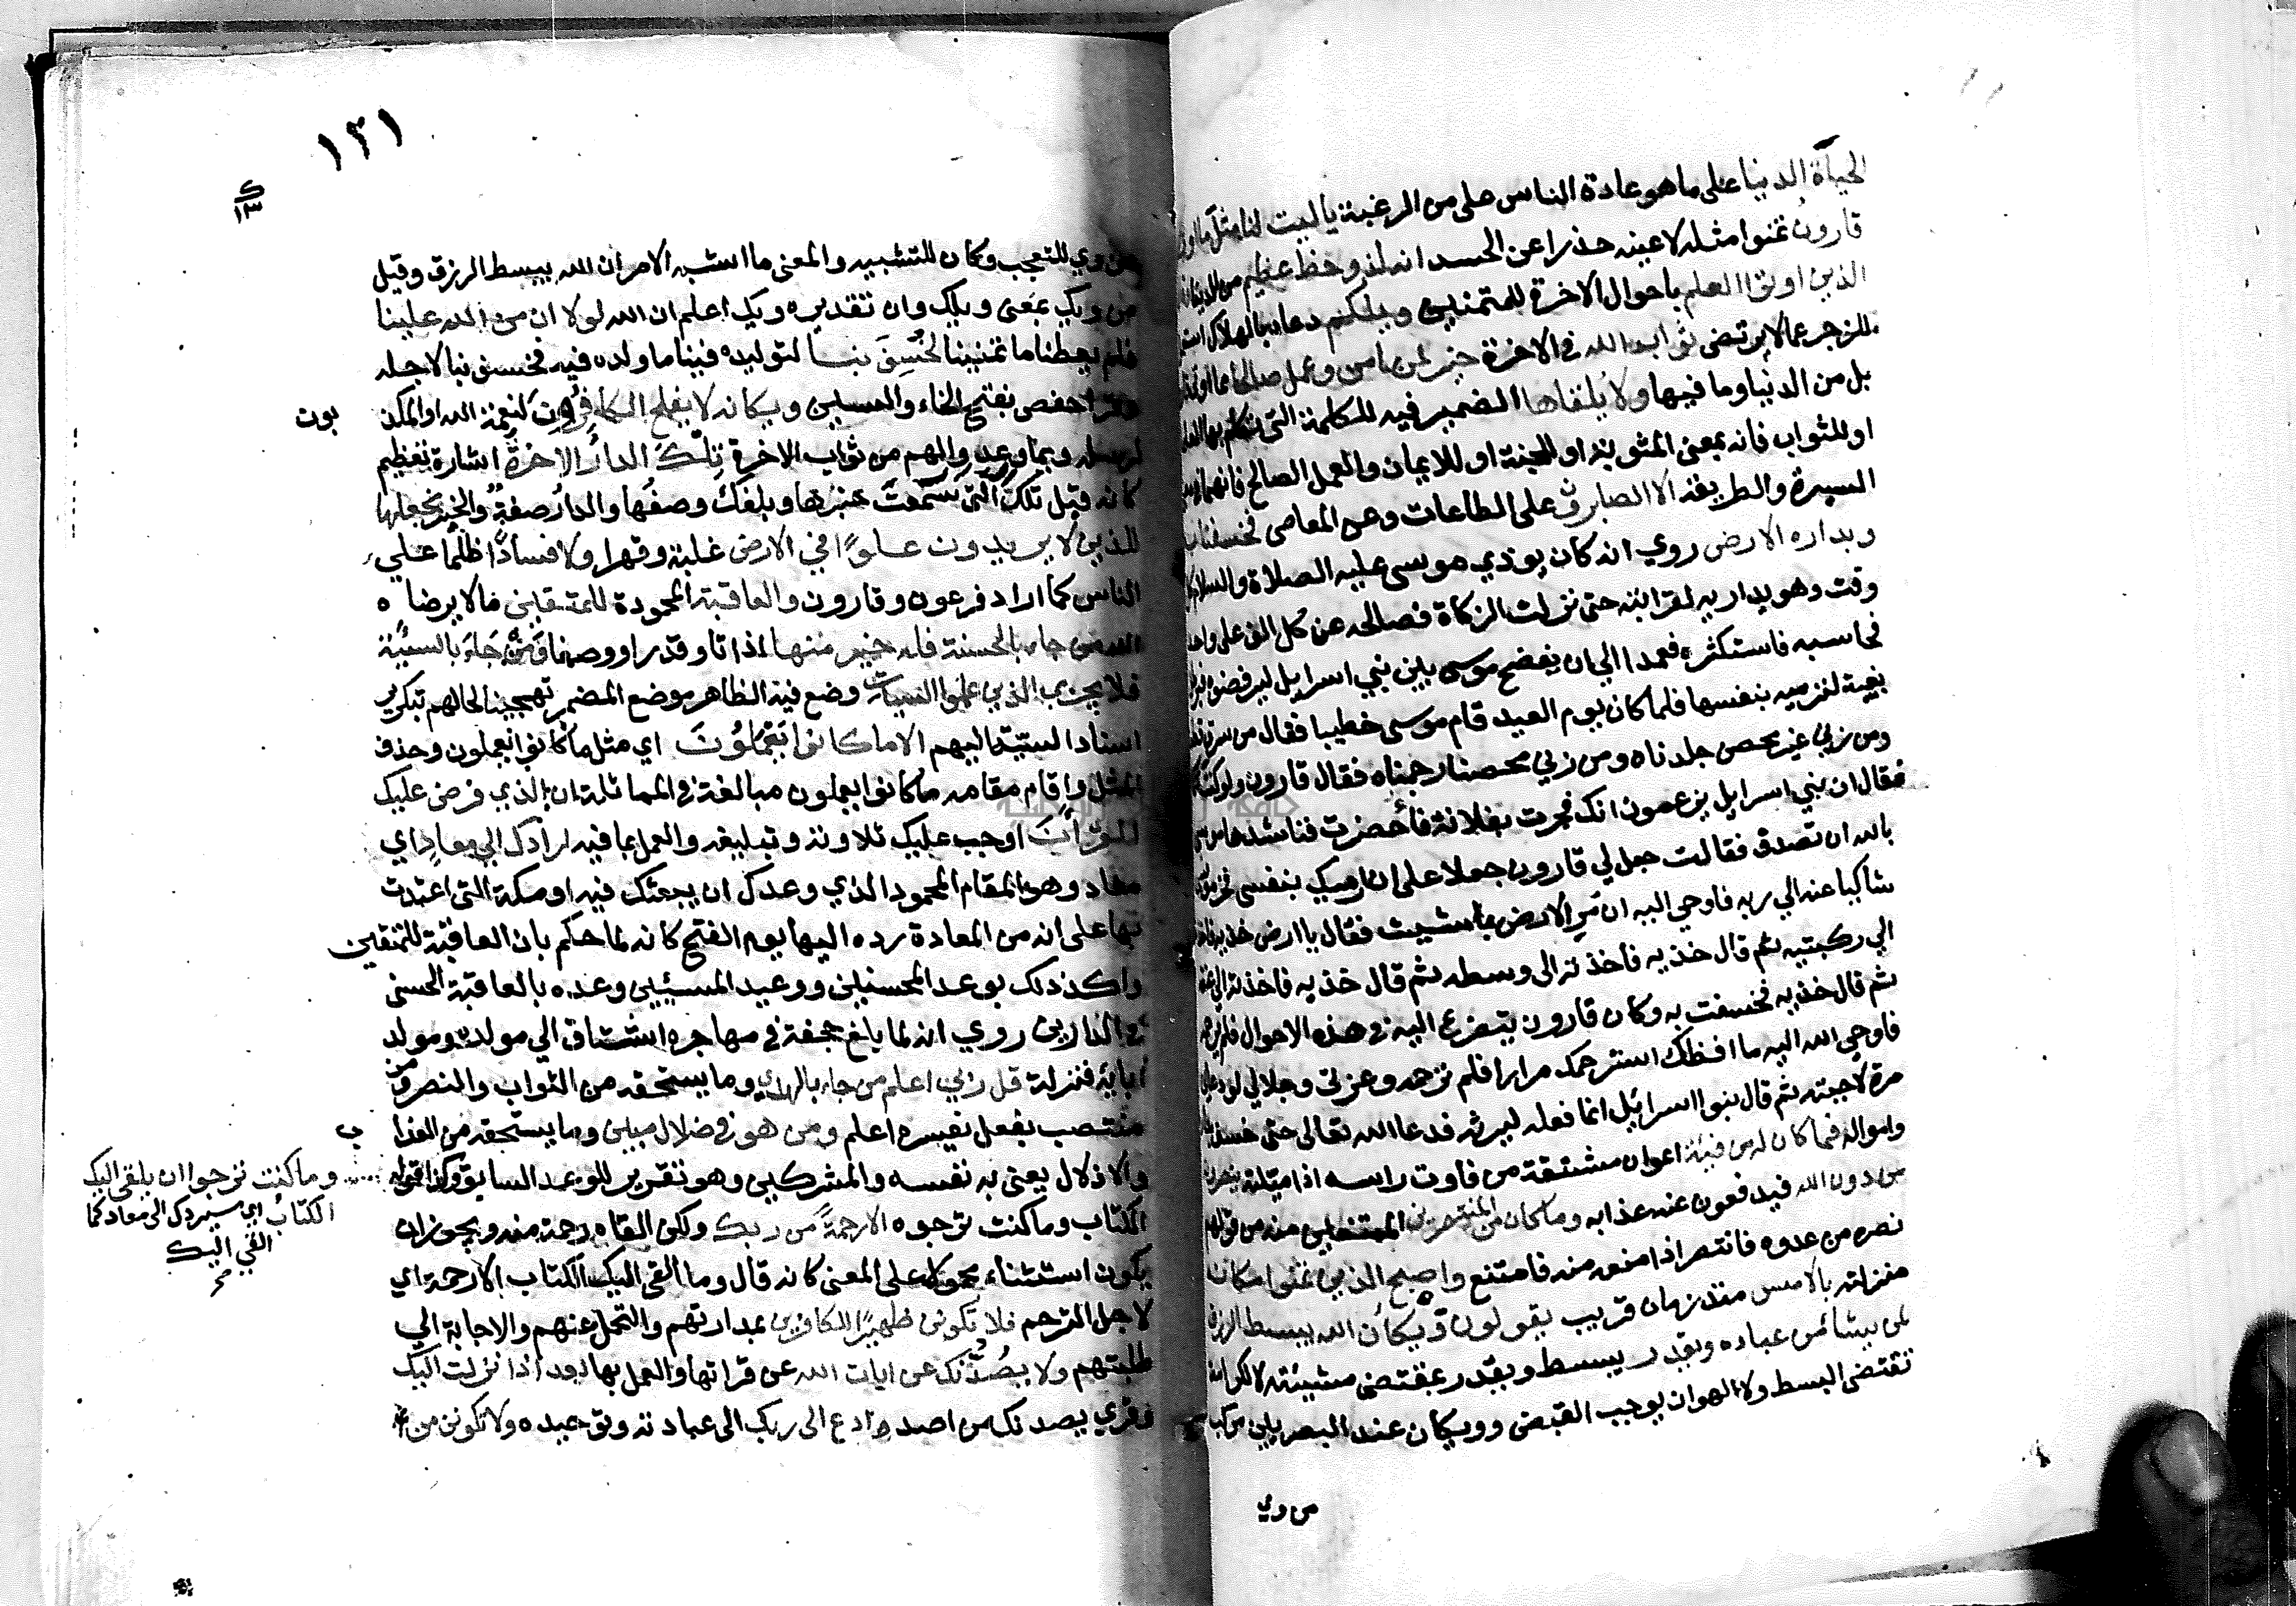 الحياة الدنيا على ما هو عادة الناس على من الرغبة يا ليت لنا مثل ما اوتي
قارون تمنوا مثله لا عينه حذرا عن الحسد انه لذو حظ عظيم من الدنيا
الذين اوتوا العلم باحوال الاخرة للمتمنين ويلكم دعاء بالهلاك استعمل
للزجر عما لا يرتضى ثواب الله في الاخرة خير لمن امن وعمل صالحا مما اوتي قارون
بل من الدنيا وما فيها ولا يلقاها الضمير فيه للكلمة التي تكلم بها العلماء
او للثواب فانه بمعنى المثوبة او للجنة او للايمان والعمل الصالح فانهما في معنى
السيرة والطريقة الا الصابرون على الطاعات وعن المعاصي فخسفنا به
وبداره الارض روي انه كان يوذي موسى عليه الصلاة والسلام كل
وقت وهو يداريه لقرابته حتى نزلت الزكاة فصالحه عن كل الف على واحد
فحاسبه فاستكثره فعمد الي ان يفضح موسى بين بني اسرايل ليرفضوه فبرطل
بغية لترميه بنفسها فلما كان يوم العيد قام موسى خطيبا فقال من سرق قطعناه
ومن زني غير محصن جلدناه ومن زني محصنا رجمناه فقال قارون ولو كنت
فقال ان بني اسرايل يزعمون انك فجرت بفلانة فأحضرت فناشدها موسى
بالله ان تصدق فقالت جعل لي قارون جعلا على ان ارميك بنفسي فخر موسى
شاكيا عنه الي ربه فاوحي اليه ان مر الارض بما شيت فقال يا ارض خذيه فاخذته
الي ركبتيه ثم قال خذيه فاخذته الى وسطه ثم قال خذيه فاخذته الي عنقه
ثم قال خذيه فخسفت به وكان قارون يتضرع اليه في هذه الاحوال فلم يرحمه
فاوحي الله اليه ما افظك استرحمك مرارا فلم ترحمه وعزتي وجلالي لو دعاني
مرة لاجبته ثم قال بنوا اسرائيل انما فعله ليرثه فدعا الله تعالى حتى خسف بداره
وامواله فما كان له من فيئة اعوان مشتقة من فاوت راسه اذا ميلته ينصرونه
من دون الله فيدفعون عنه عذابه وما كان من المنتصرين الممتنعين منه من قولهم
نصره من عدوه فانتصر اذا منعه منه فامتنع واصبح الذين تمنوا مكانه
منزلته بالامس منذ زمان قريب يقولون ويكأن الله يبسط الرزق
لمن يشا من عباده ويقدر يبسط ويقدر بمقتضى مشيئته لا لكرامة
تقتضي البسط ولا لهوان يوجب القبض وويكان عند البصريين مركب
من وي
١٢١
ك
١٣
من وي للتعجب وكان للتشبيه والمعنى ما اشبه الامر ان الله يبسط الرزق وقيل
من ويك بمعنى ويلك وان تقديره ويك اعلم ان الله لولا ان من الله علينا
فلم يعطنا ما تمنينا لخسف بنا لتوليده فينا ما ولده فيه فخسف بنا لاجله
وقرا حفص بفتح الخاء والسين ويكانه لا يفلح الكافرون لنعمة الله او المكذ
بوت
لرسله وبما وعدوا لهم من ثواب الاخرة تلك الدار الاخرة اشارة تعظيم
كانه قيل تلك التي سمعت خبرها وبلغك وصفها والدار صفة والخبر نجعلها
للذين لا يريدون علوا في الارض غلبة وقهرا ولا فسادا ظلما على
الناس كما اراد فرعون وقارون والعاقبة المحمودة للمتقين ما لا يرضاه
الله من جاء بالحسنة فله خير منها ذاتا وقدرا ووصفا ومن جاء بالسيئة
فلا يجزي الذين عملوا السيات وضع فيه الظاهر موضع المضمر تهجينا لحالهم بتكرير
اسناد السيئة اليهم الا ما كانوا يعملون اي مثل ما كانوا يعملون وحذف
المثل واقام مقامه ما كانوا يعملون مبالغة في المماثلة ان الذي فرض عليك
القرآن اوجب عليك تلاوته وتبليغه والعمل بما فيه لرادك الي معاد اي
معاد وهو المقام المحمود الذي وعدك ان يبعثك فيه او مكة التي اعتدت
بها على انه من العادة رده اليها يوم الفتح كانه لما حكم بان العاقبة للمتقين
واكد ذلك بوعد المحسنين ووعيد المسيئين وعده بالعاقبة الحسنى
في الدارين روي انه لما بلغ جحفة في مهاجره اشتاق الي مولده ومولد
ابايه فنزلت قل ربي اعلم من جاء بالهدي وما يستحقه من الثواب والنصر ومن
منتصب بفعل يفسره اعلم ومن هو في ضلال مبين وما يستحقه من العذا
ب
والاذلال يعني به نفسه والمشركين وهو تقرير للوعد السابق وكذا قوله
وما كنت ترجوا ان يلقى اليك
الكتاب اي سيردك الى معاد كما
القي اليك
صح
الكتاب وما كنت ترجوه الا رحمة من ربك ولكن القاه رحمة منه ويجوز ان
يكون استثناء محمولا على المعنى كانه قال وما القى اليك الكتاب الا رحمة اي
لاجل الترحم فلا تكونن ظهيرا للكافرين بمدارتهم والتحمل عنهم والاجابة الي
طلبتهم ولا يصدنك عن ايات الله عن قراتها والعمل بها بعد اذ انزلت اليك
وقري يصدنك من اصد وادع الى ربك الى عبادته وتوحيده ولا تكونن من